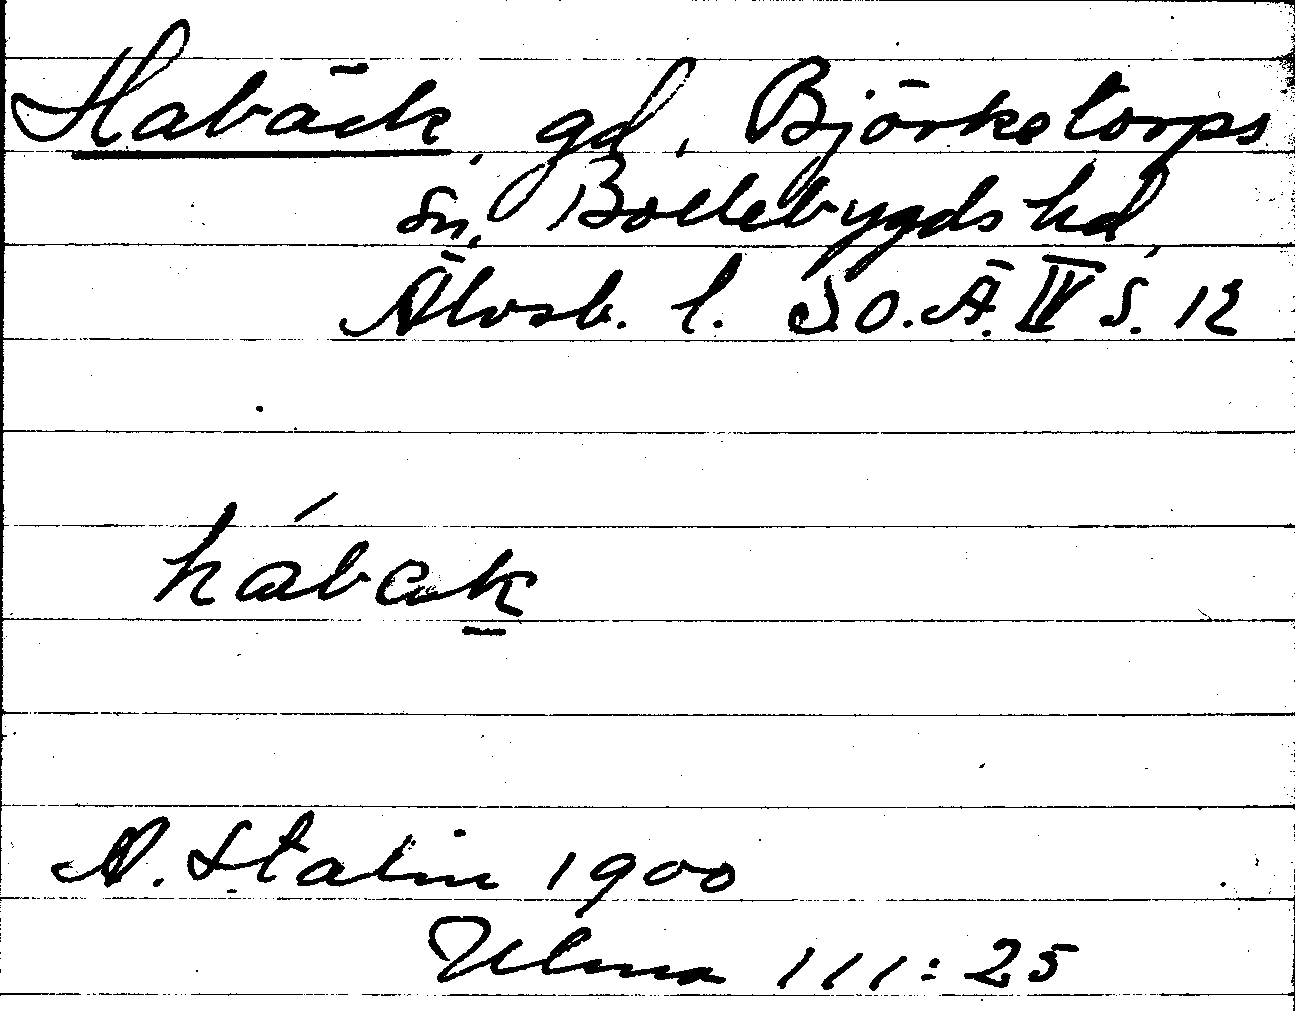 Habäck, gd, Björketorps
sn, Bollebygds hd,
Älvsb. l. SO.Ä. IV S. 12
hábæk
A. Stalin 1900
Ulma 111:25